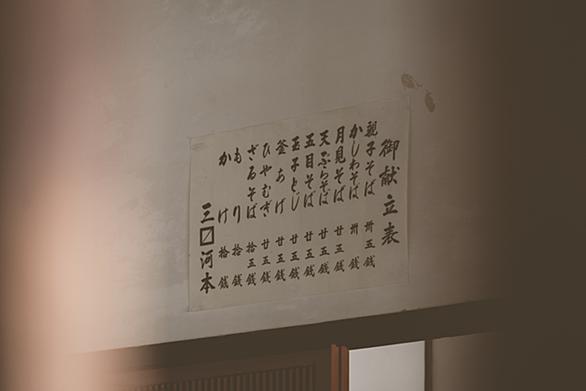 御献立表
親子そば 卅五銭
かしわそば 卅銭
月見そば 廿五銭
天ぷらそば 廿五銭
五目そば 廿五銭
玉子とじ 廿五銭
釜あげ 廿五銭
ひやむぎ 廿五銭
ざるそば 拾五銭
もり 拾銭
かけ 拾銭
三〼河本